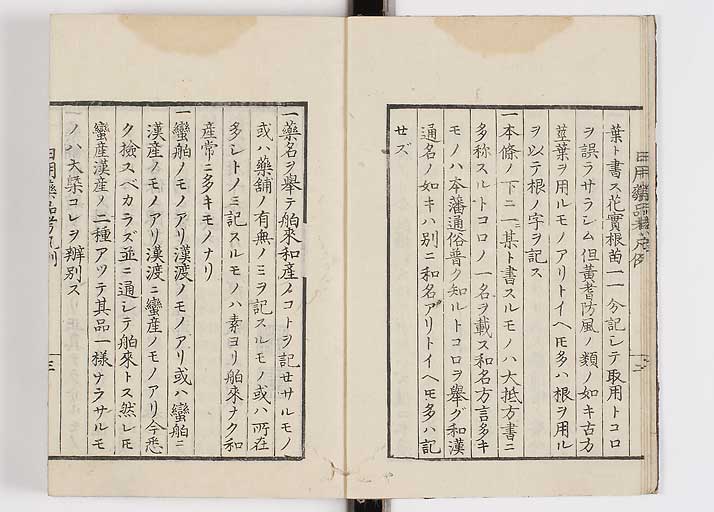 葉ト書ス花實根苗一一分記シテ取用トコロ
ヲ誤ラサラシム但黄耆防風ノ類ノ如キ古方
莖葉ヲ用ルモノアリトイヘㇳモ多ハ根ヲ用ル
ヲ以テ根ノ字ヲ記ス
一本條ノ下ニ一某ト書スルモノハ大抵方書ニ
多称スルトコロノ一名ヲ載ス和名方言多キ
モノハ本藩通俗普ク知ルトコロヲ舉グ和漢
通名ノ如キハ別ニ和名アリトイヘㇳモ多ハ記
セズ
一藥名ヲ舉テ舶來和産ノコトヲ記セサルモノ
或ハ藥舗ノ有無ノミヲ記スルモノ或ハ所在
多シトノミ記スルモノハ素ヨリ舶來ナク和
産常ニ多キモノナリ
一蠻舶ノモノアリ漢渡ノモノアリ或ハ蠻舶ニ
漢産ノモノアリ漢渡ニ蠻産ノモノアリ今悉
ク檢スベカラズ並ニ通シテ舶來トス然レㇳモ
蠻産漢産ノ二種アツテ其品一樣ナラサルモ
ノハ大槩コレヲ辨別ス
日用藥品考凡例
三